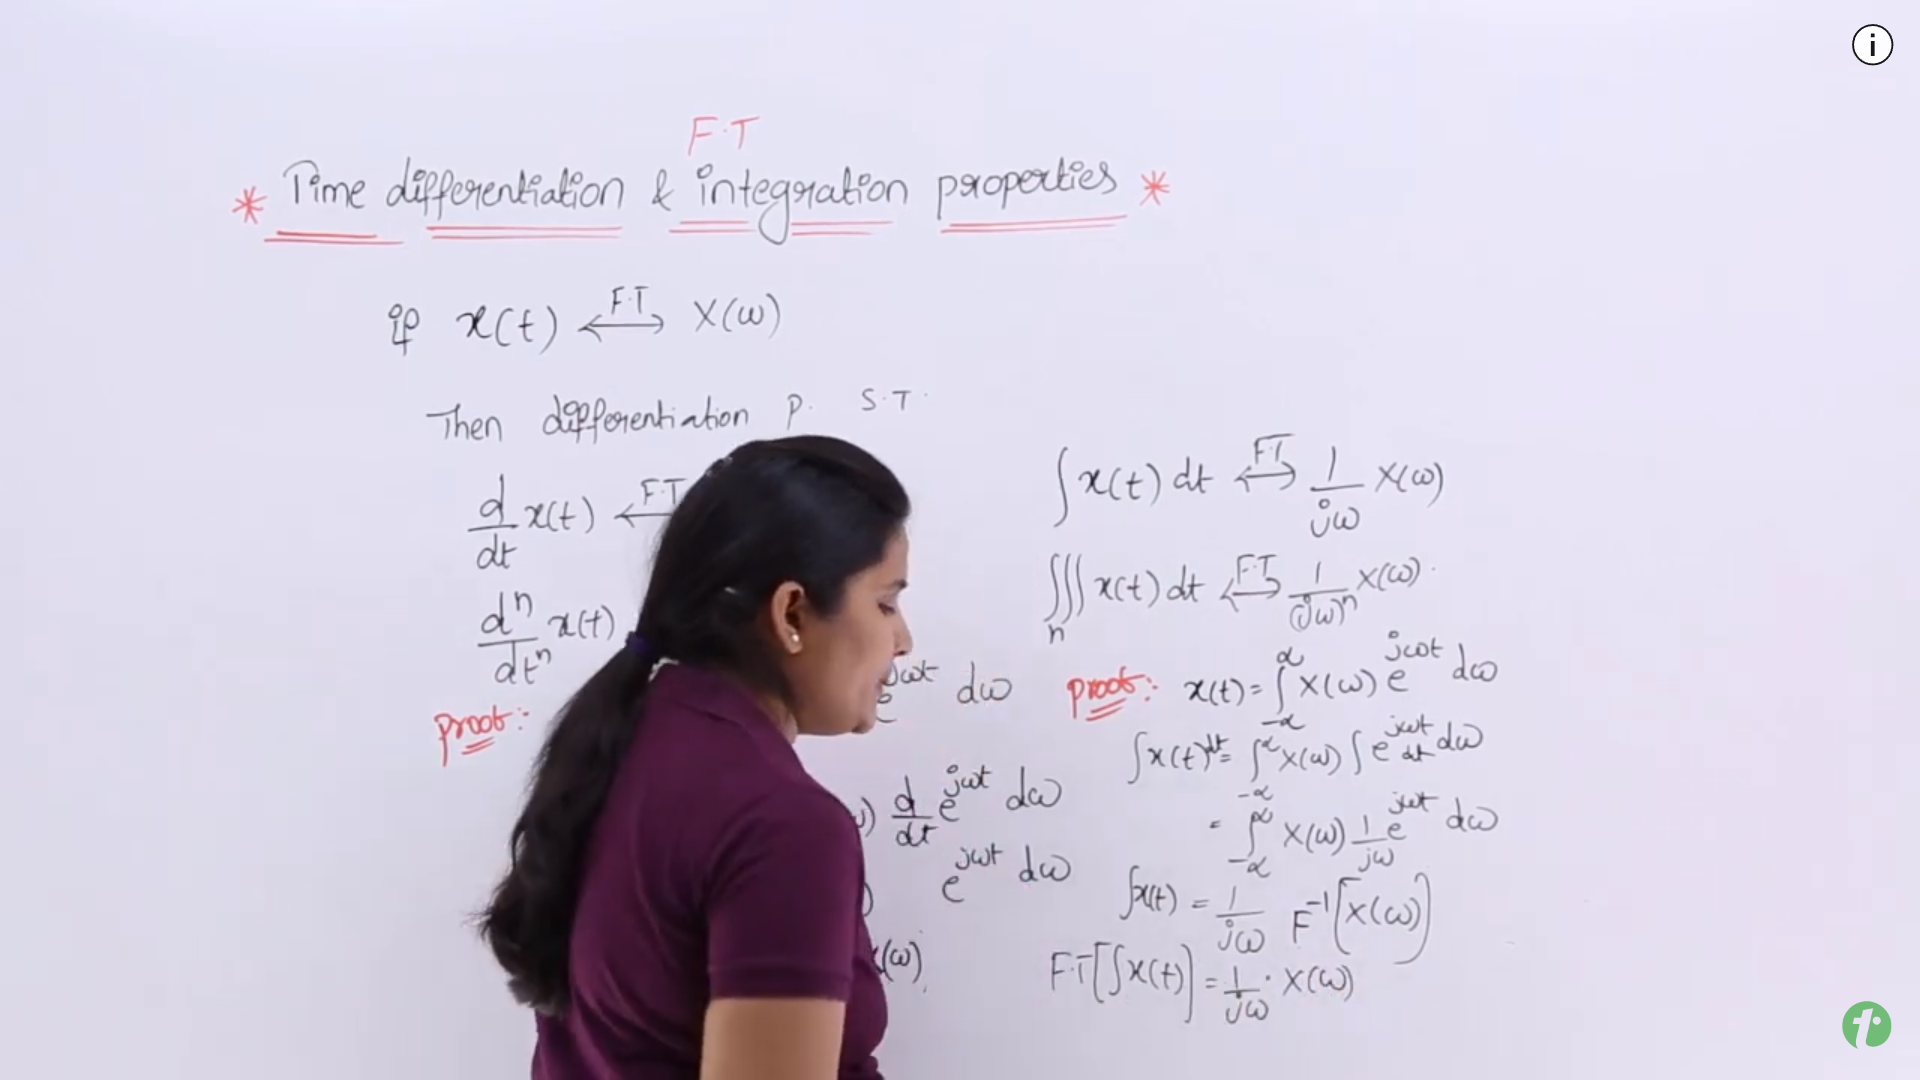 F.T
* Time differentiation & integration properties *
if x(t) <-F.T-> X(ω)
Then differentiation p. S.T.
d/dt x(t) <-F.T
d^n/dt^n x(t)
proof:
e^jωt dω
d/dt e^jωt dω
e^jωt dω
(ω)
∫x(t) dt <-F.T-> 1/jω X(ω)
∫∫∫ n x(t) dt <-F.T-> 1/(jω)^n X(ω).
proof: x(t) = ∫_-α^α X(ω) e^jωt dω
∫x(t)dt = ∫_-α^α X(ω) ∫e^jωt dt dω
= ∫_-α^α X(ω) 1/jω e^jωt dω
∫x(t) = 1/jω F^-1[X(ω)]
F.T[∫x(t)] = 1/jω . X(ω)
i